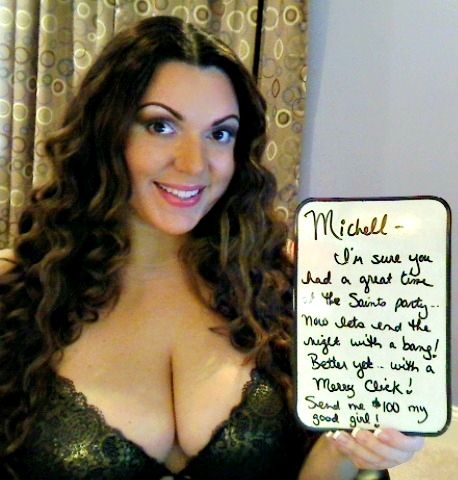 Michell-
I'm sure you
had a great time
at the Saints party...
Now lets end the
night with a bang!
Better yet.. with a
Merry Click!
Send me $100 my
good girl!